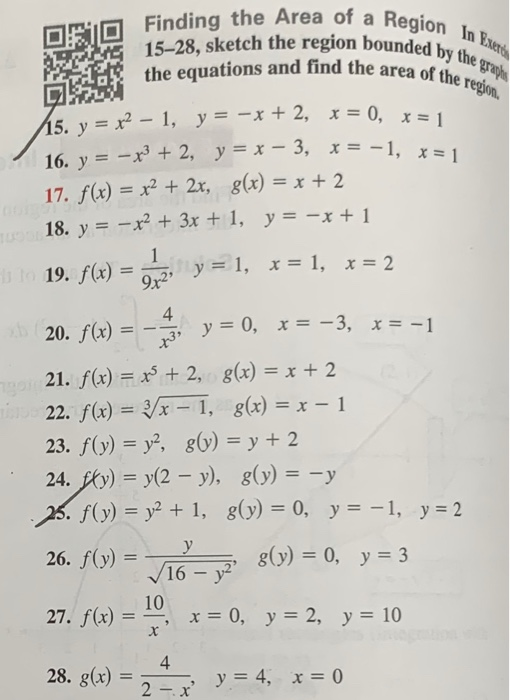 Finding the Area of a Region In
15–28, sketch the region bounded by the
the equations and find the area of the region.
15. y = x² − 1, y = −x + 2, x = 0, x = 1
16. y = −x³ + 2, y = x − 3, x = −1, x = 1
17. f(x) = x² + 2x, g(x) = x + 2
18. y = −x² + 3x + 1, y = −x + 1
19. f(x) = 1/(9x²), y = 1, x = 1, x = 2
20. f(x) = −4/x³, y = 0, x = −3, x = −1
21. f(x) = x⁵ + 2, g(x) = x + 2
22. f(x) = ∛(x − 1), g(x) = x − 1
23. f(y) = y², g(y) = y + 2
24. f(y) = y(2 − y), g(y) = −y
25. f(y) = y² + 1, g(y) = 0, y = −1, y = 2
26. f(y) = y/√(16 − y²), g(y) = 0, y = 3
27. f(x) = 10/x, x = 0, y = 2, y = 10
28. g(x) = 4/(2 − x), y = 4, x = 0